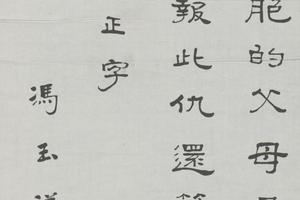 胞的父母
報此仇還
正字
馮玉